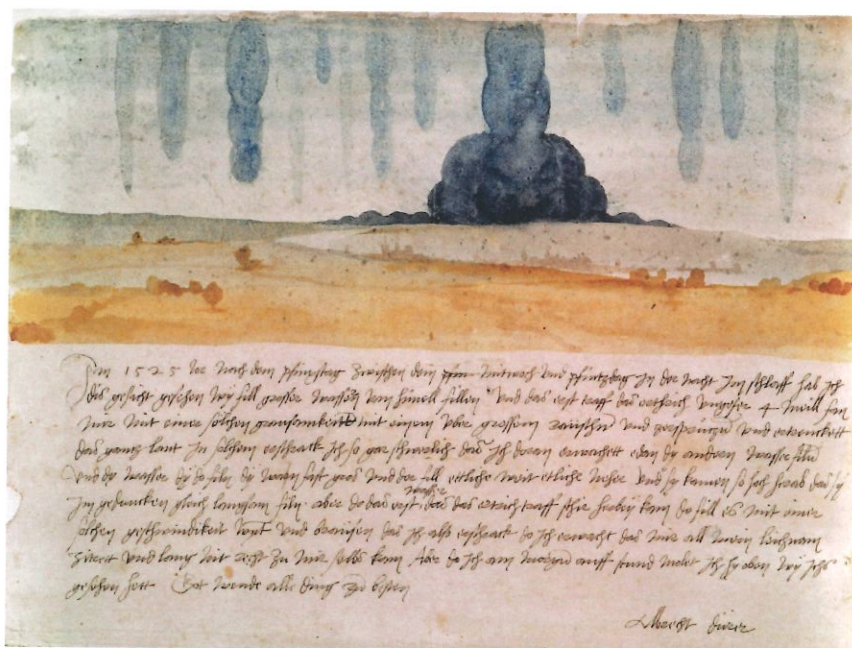 Im 1525 Jor nach dem pfinxstag zwischen dem mitwoch und pfintzdag in der nacht im schlaff hab ich
dis gesicht gesehen wy fill grosser wassern vom himell fillen Und das erst traff das erthrich ungefer 4 meill fan
mir mit einer solchen grausamkeitt mit einem uber grossem raüschn und zersprützn und ertrenckett
das gantz lant In solchem erschrack ich so gar schwerlich das ich doran erwachett edan dy andern wasser filn
Und dy wasser dy do filn dy warn fast gros und der fill ettliche weit etliche neher und sy kamen so hoch herab das sy
im gedancken gleich langsam filn. aber do das erst wasser das das ertrich traff schir herbey kam do fill es mit einer
solchen geschwindikeit wynt und braüsen das ich also erschrack do ich erwacht das mir all mein leichnam
zitrett und lang nit recht zu mir selbs kam Aber do ich am morgn auff stund molet ich hy oben wy ichs
gesehen hett Got wende alle ding zu besten
Albrecht dürer